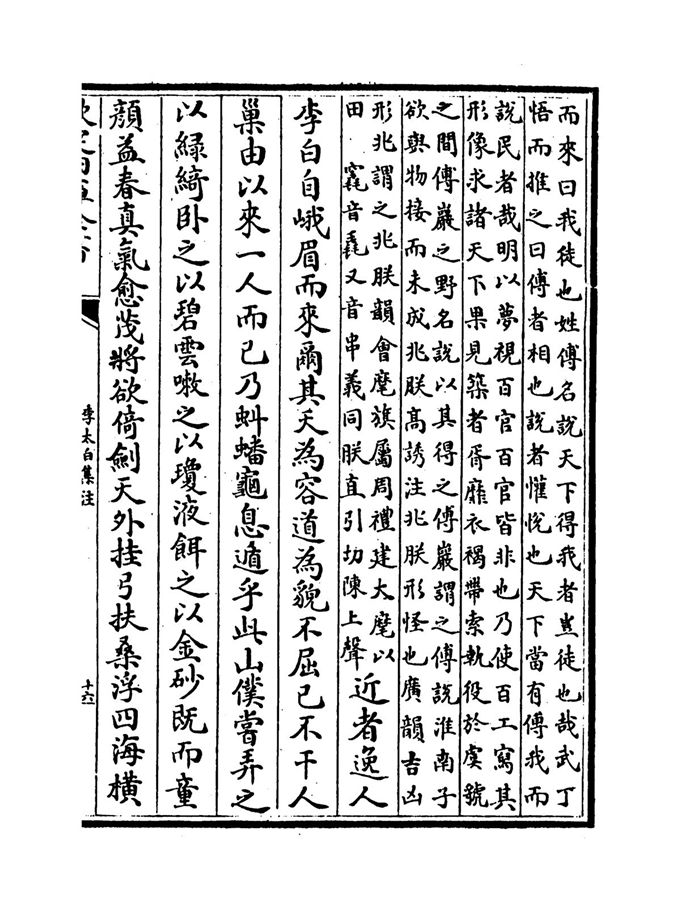 而來曰我徒也姓傅名說天下得我者豈徒也哉武丁
悟而推之曰傅者相也說者懽悅也天下當有傅我而
說民者哉明以夢視百官百官皆非也乃使百工寫其
形像求諸天下果見築者胥靡衣褐帶索執役於虞虢
之間傅巖之野名說以其得之傅巖謂之傅說淮南子
欲與物接而未成兆朕高誘注兆朕形怪也廣韻吉凶
形兆謂之兆朕韻會麾旗屬周禮建大麾以
田　竁音毳又音串義同朕直引切陳上聲
近者逸人
李白自峨眉而來爾其天為容道為貌不屈己不干人
巢由以來一人而已乃蚪蟠龜息遁乎此山僕嘗弄之
以綠綺卧之以碧雲嗽之以瓊液餌之以金砂既而童
顏益春真氣愈茂將欲倚劍天外挂弓扶桑浮四海橫
李太白集注
十六